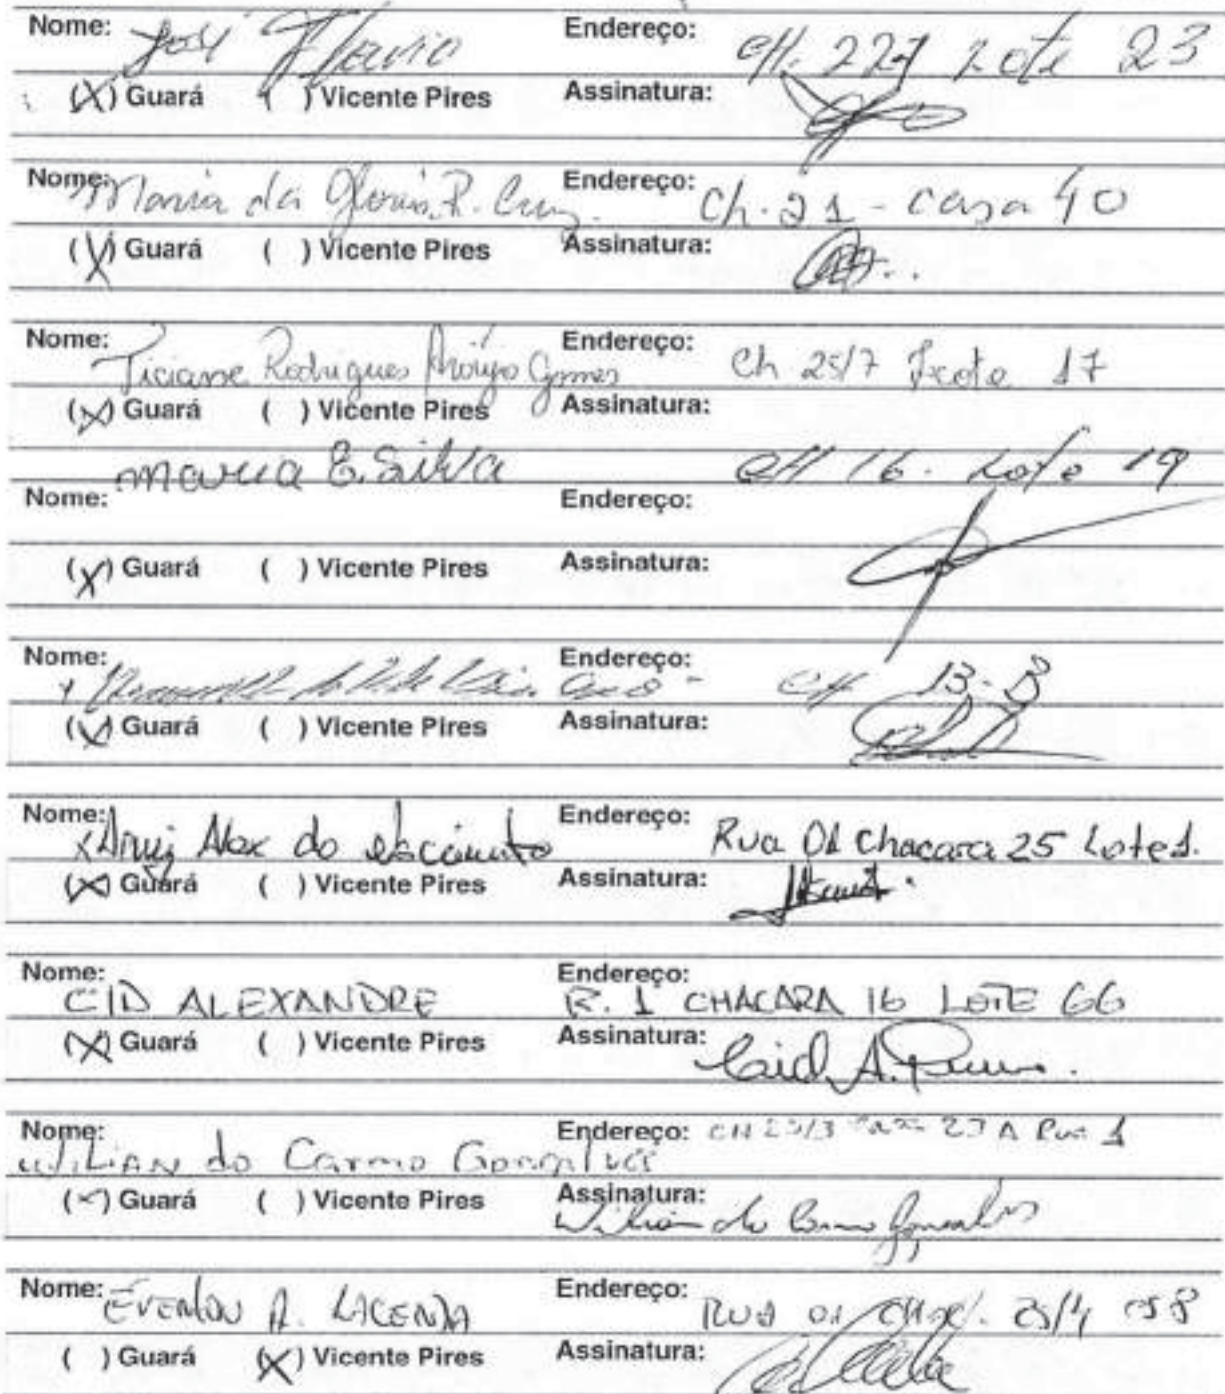 Nome: José Flavio Endereço: CH. 227 Lote 23
(X) Guará ( ) Vicente Pires Assinatura:
Nome: Maria da Gloria R. Cruz. Endereço: Ch. 21 - casa 40
(X) Guará ( ) Vicente Pires Assinatura:
Nome: Ticiane Rodrigues Araújo Gomes Endereço: Ch 25/7 Lote 17
(X) Guará ( ) Vicente Pires Assinatura:
Maria E. Silva CH 16. Lote 19
Nome: Endereço:
(X) Guará ( ) Vicente Pires Assinatura:
Nome: Endereço: CH 13-B
(X) Guará ( ) Vicente Pires Assinatura:
Nome: Alex do Endereço: Rua 01 Chacara 25 Lote 1.
(X) Guará ( ) Vicente Pires Assinatura:
Nome: CID ALEXANDRE Endereço: R. 1 CHACARA 16 LOTE 66
(X) Guará ( ) Vicente Pires Assinatura: Cid A.
Nome: Wilian do Carmo Gonçalves Endereço: CH 25/3 27 A Rua 1
(X) Guará ( ) Vicente Pires Assinatura: Wilian do Carmo Gonçalves
Nome: EVERTON A. LACERDA Endereço: RUA 01 CHAC. 25/4 CS 8
( ) Guará (X) Vicente Pires Assinatura: